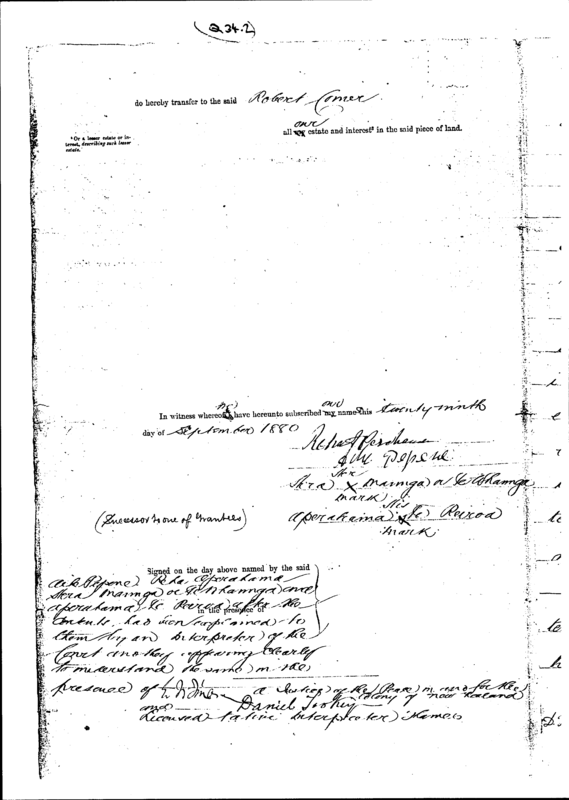 (Q 34.2)
do hereby transfer to the said Robert Comer
our
all my estate and interest* in the said piece of land.
* Or a lesser estate or interest, describing such lesser estate.
we our
In witness whereof I have hereunto subscribed my name this twenty ninth
day of September 1880
Pepene
her
Hera x Maunga or Te Whaunga
mark
his
(Successor to one of Grantees) Aperahama x Te Reiroa
mark
Signed on the day above named by the said
Pepene Reha Aperahama
Hera Maunga or Te Whaunga and
Aperahama Te Reiroa after the
in the presence of
contents had been explained to
them by an Interpreter of the
Court and they appearing clearly
to understand the same in the
presence of a Justice of the Peace in and for the
Colony of New Zealand
and Daniel Tookey
Licensed Native Interpreter Thames